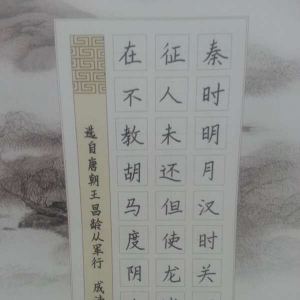 秦时明月汉时关
征人未还但使龙
在不教胡马度阴
选自唐朝王昌龄从军行 成